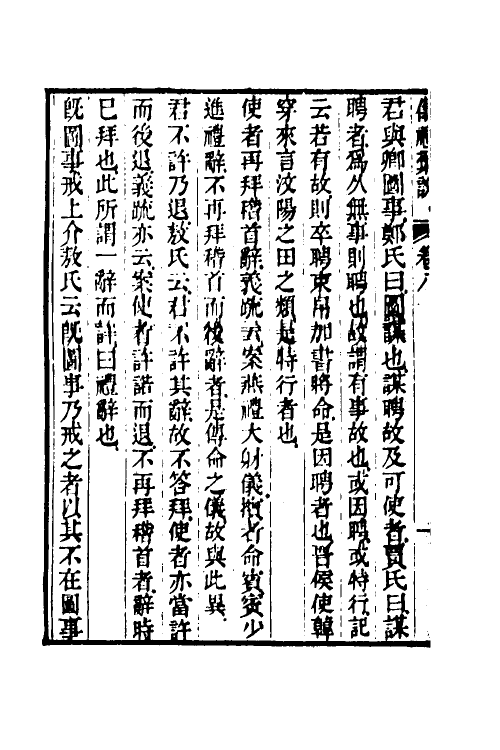 君與卿圖事鄭氏曰圖謀也謀聘故及可使者賈氏曰謀
聘者爲久無事則聘也故謂有事故也或因聘或特行記
云若有故則卒聘束帛加書將命是因聘者也晉侯使韓
穿來言汶陽之田之類是特行者也
使者再拜稽首辭義疏云案燕禮大射儀擯者命賓賓少
進禮辭不再拜稽首而後辭者是傳命之儀故與此異
君不許乃退敖氏云君不許其辭故不答拜使者亦當許
而後退義疏亦云案使者許諾而退不再拜稽首者辭時
巳拜也此所謂一辭而許曰禮辭也
旣圖事戒上介敖氏云旣圖事乃戒之者以其不在圖事